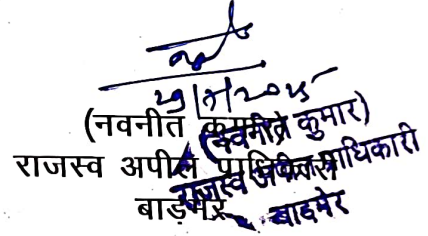 (नवनीत कुमार)
राजस्व अपील प्राधिकारी
बाड़मेर
(नवनीत कुमार)
राजस्व अपील प्राधिकारी
बाड़मेर